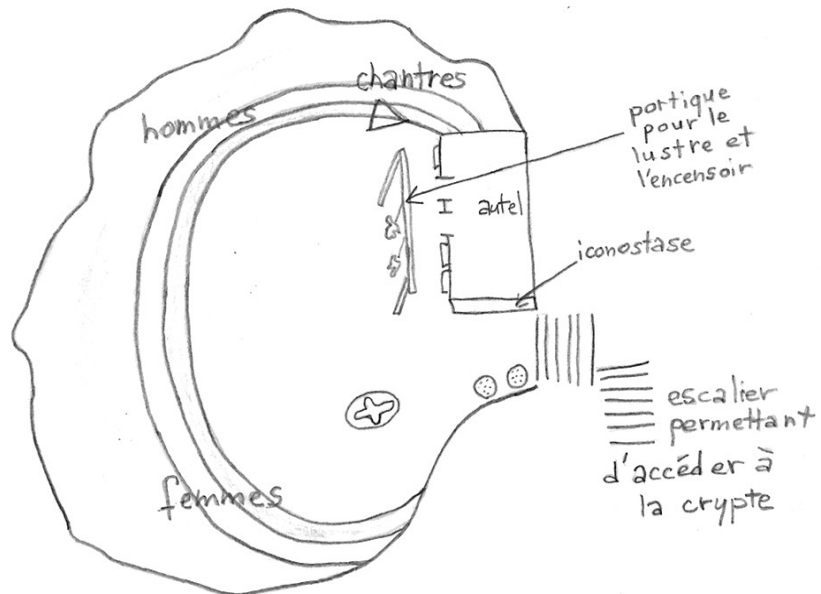 chantres
hommes
portique
pour le
lustre et
l'encensoir
autel
iconostase
escalier
permettant
d'accéder à
la crypte
femmes